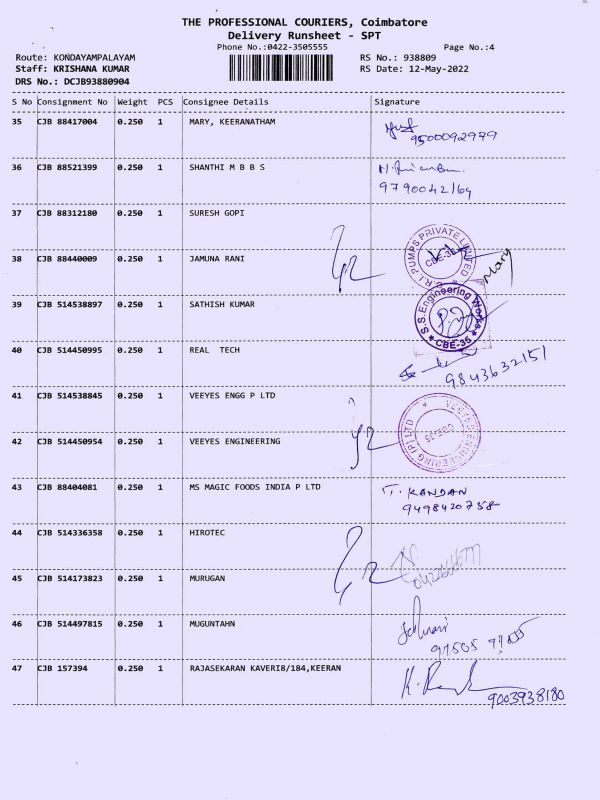 THE PROFESSIONAL COURIERS, Coimbatore
Delivery Runsheet - SPT
Phone No.:0422-3505555 Page No.:4
Route: KONDAYAMPALAYAM RS No.: 938809
Staff: KRISHANA KUMAR RS Date: 12-May-2022
DRS No.: DCJB93880904
S No Consignment No Weight PCS Consignee Details Signature
35 CJB 88417004 0.250 1 MARY, KEERANATHAM
9500092979
36 CJB 88521399 0.250 1 SHANTHI M B B S
9790042169
37 CJB 88312180 0.250 1 SURESH GOPI
38 CJB 88440009 0.250 1 JAMUNA RANI
C.R.I PUMPS PRIVATE LIMITED CBE-35
Mary
39 CJB 514538897 0.250 1 SATHISH KUMAR
S.S.Engineering Works CBE-35
40 CJB 514450995 0.250 1 REAL TECH
9843632151
41 CJB 514538845 0.250 1 VEEYES ENGG P LTD
42 CJB 514450954 0.250 1 VEEYES ENGINEERING
ENGINEERING (P) LTD CBE-35
43 CJB 88404081 0.250 1 MS MAGIC FOODS INDIA P LTD
T. KANDAN
9498420758
44 CJB 514336358 0.250 1 HIROTEC
45 CJB 514173823 0.250 1 MURUGAN
46 CJB 514497815 0.250 1 MUGUNTAHN
47 CJB 157394 0.250 1 RAJASEKARAN KAVERI8/184,KEERAN
9003938180